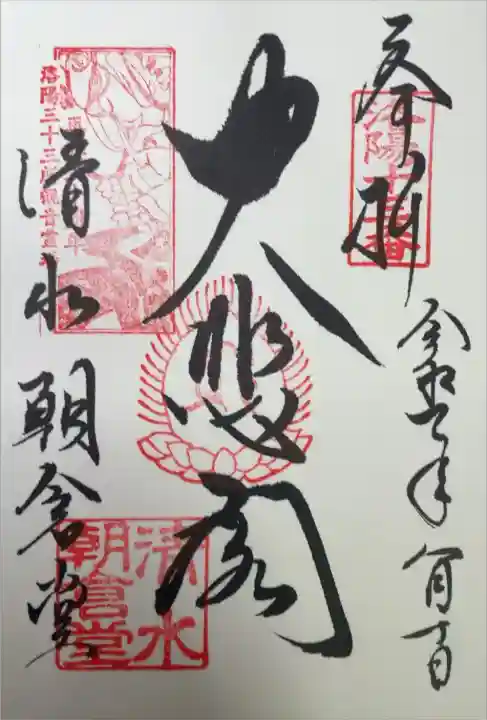 奉拝
洛陽十三番
令和二年
大悲閣
清水
朝倉堂
洛陽三十三所観音霊場
清水
朝倉堂